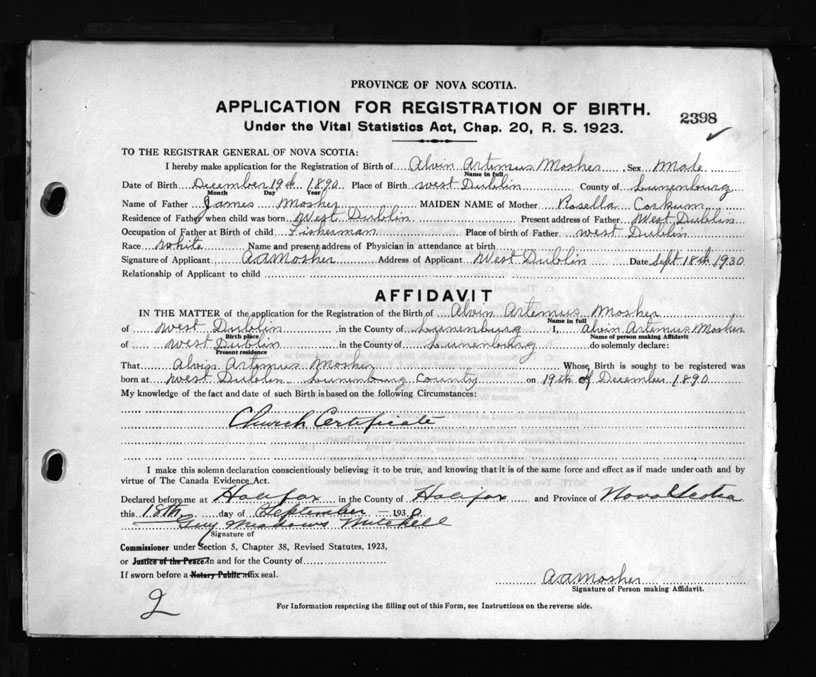 PROVINCE OF NOVA SCOTIA.
APPLICATION FOR REGISTRATION OF BIRTH.
2398
Under the Vital Statistics Act, Chap. 20, R. S. 1923.
TO THE REGISTRAR GENERAL OF NOVA SCOTIA:
I hereby make application for the Registration of Birth of Alvin Artemus Mosher Sex Male
Name in full
Date of Birth December 19th 1890 Place of Birth West Dublin County of Lunenburg
Month Day Year
Name of Father James Mosher MAIDEN NAME of Mother Rosella Corkum
Residence of Father when child was born West Dublin Present address of Father West Dublin
Occupation of Father at Birth of child Fisherman Place of birth of Father West Dublin
Race White Name and present address of Physician in attendance at birth
Signature of Applicant A A Mosher Address of Applicant West Dublin Date Sept 18th 1930
Relationship of Applicant to child
AFFIDAVIT
IN THE MATTER of the application for the Registration of the Birth of Alvin Artemus Mosher
Name in full
of West Dublin, in the County of Lunenburg I, Alvin Artemus Mosher
Birth place Name of person making Affidavit
of West Dublin in the County of Lunenburg do solemnly declare:
Present residence
That Alvin Artemus Mosher Whose Birth is sought to be registered was
born at West Dublin Lunenburg County on 19th of December 1890
My knowledge of the fact and date of such Birth is based on the following Circumstances:
Church Certificate
I make this solemn declaration conscientiously believing it to be true, and knowing that it is of the same force and effect as if made under oath and by
virtue of The Canada Evidence Act.
Declared before me at Halifax in the County of Halifax and Province of Nova Scotia
this 18th day of September 1930
Guy Meadows Mitchell
Signature of
Commissioner under Section 5, Chapter 38, Revised Statutes, 1923,
or Justice of the Peace in and for the County of
If sworn before a Notary Public affix seal.
A A Mosher
Signature of Person making Affidavit.
2
For Information respecting the filling out of this Form, see Instructions on the reverse side.